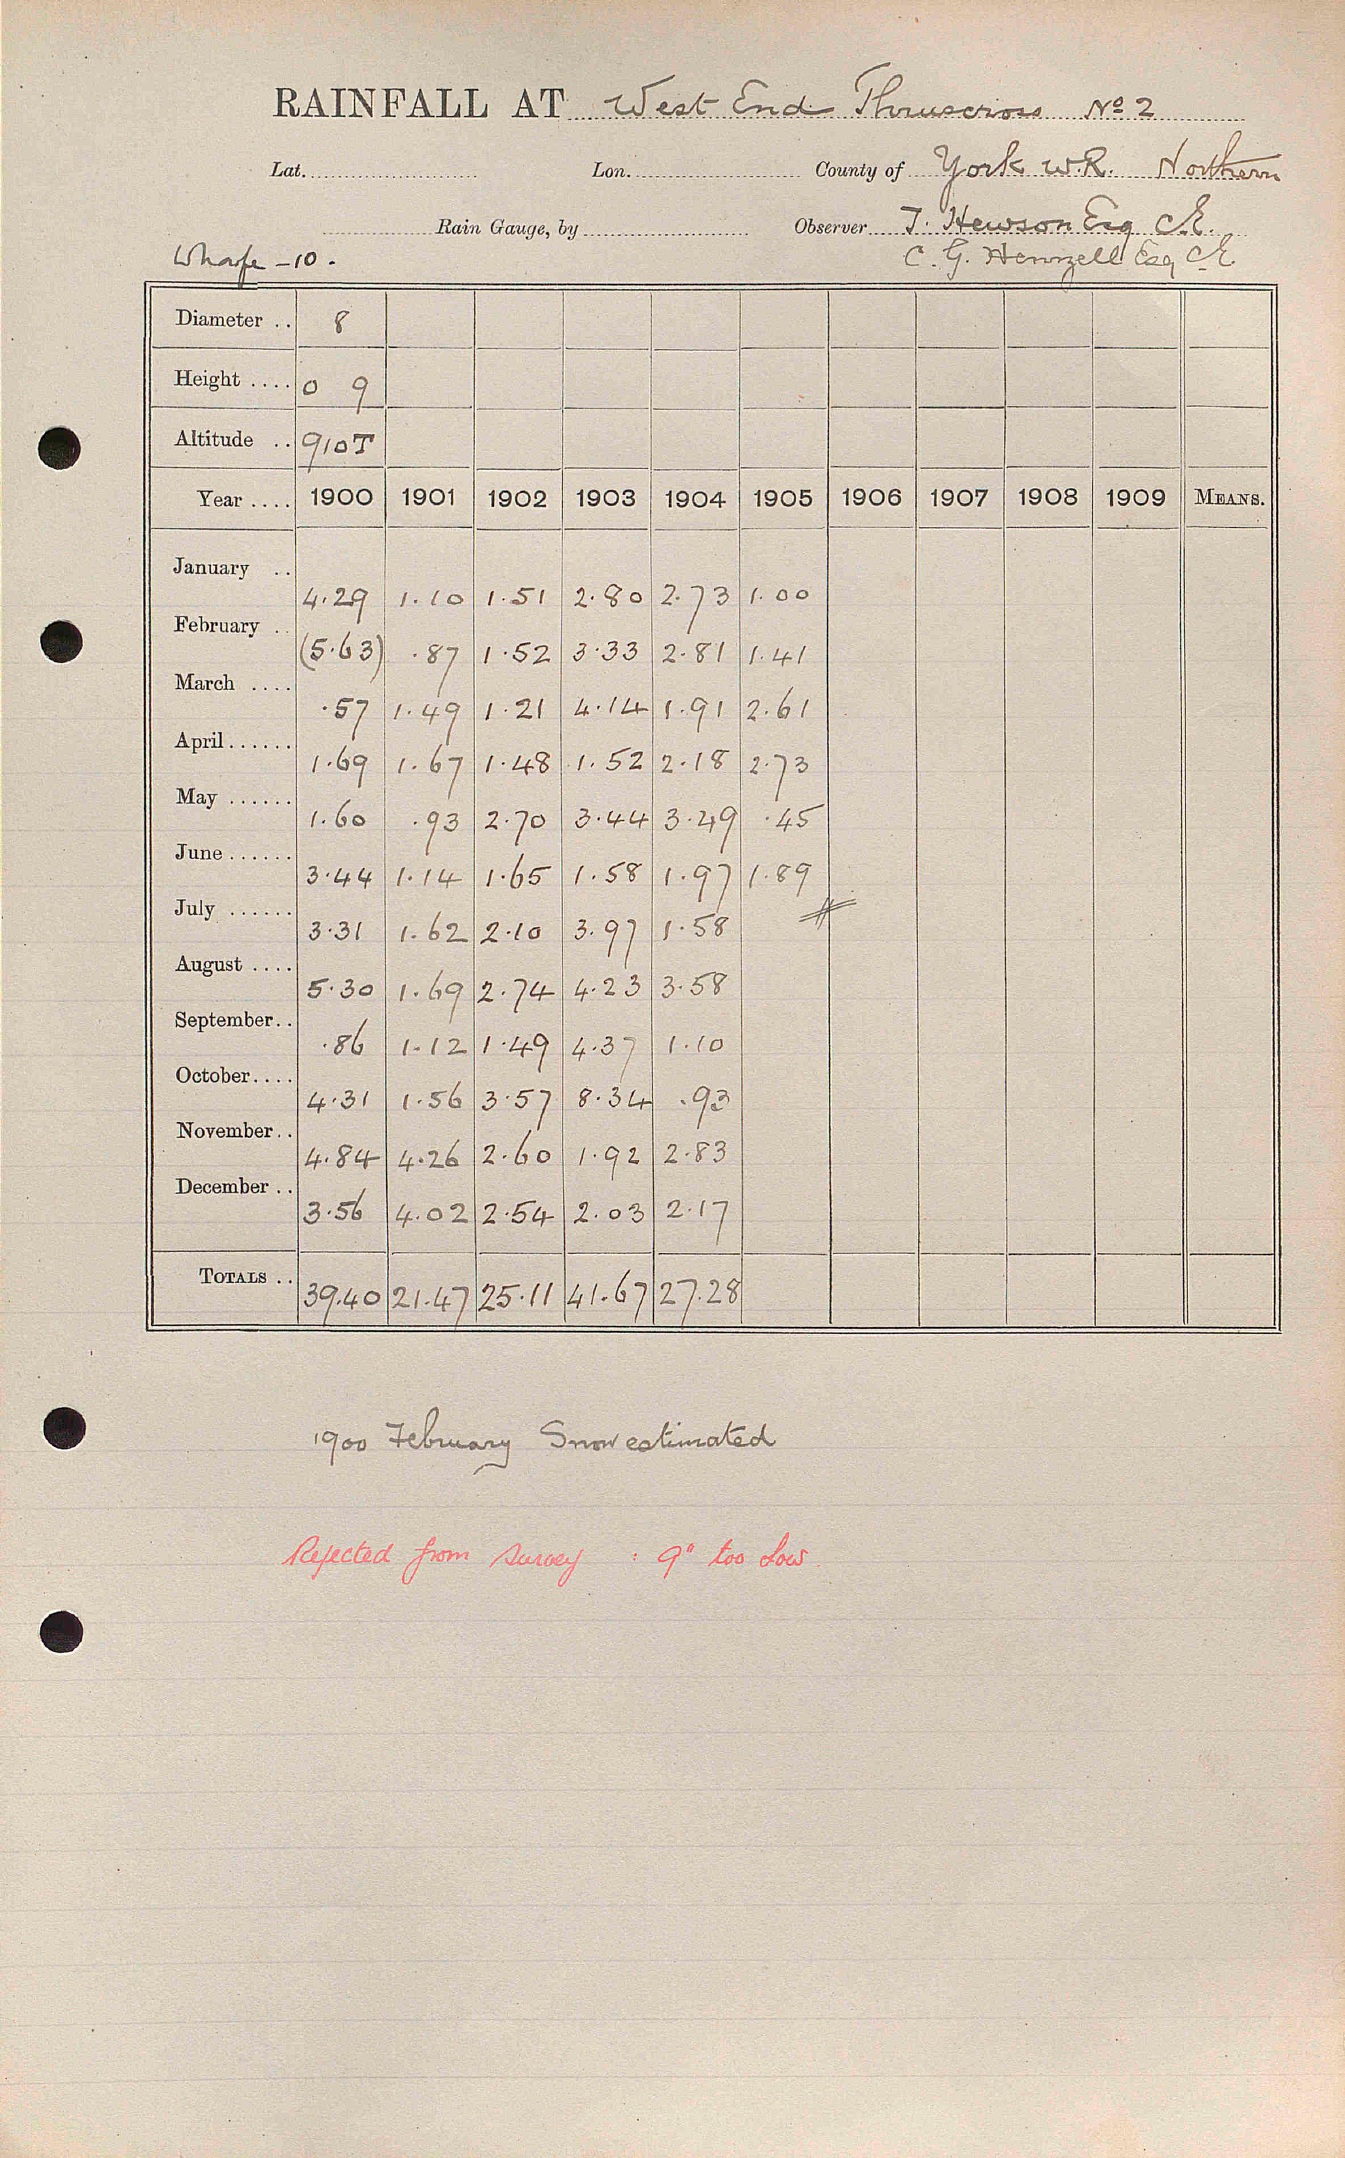 RAINFALL AT West End Thruscross No 2
Lat. Lon. County of York W.R. Northern
Rain Gauge, by Observer T. Hewson Esq C.E.
Wharfe - 10. C. G. Henzell Esq C.E
Diameter .. 8
Height .... 0 9
Altitude .. 910T
Year .... 1900 1901 1902 1903 1904 1905 1906 1907 1908 1909 MEANS.
January .. 4.29 1.10 1.51 2.80 2.73 1.00
February .. (5.63) .87 1.52 3.33 2.81 1.41
March .... .57 1.49 1.21 4.14 1.91 2.61
April...... 1.69 1.67 1.48 1.52 2.18 2.73
May ...... 1.60 .93 2.70 3.44 3.49 .45
June...... 3.44 1.14 1.65 1.58 1.97 1.89
July ...... 3.31 1.62 2.10 3.97 1.58
August .... 5.30 1.69 2.74 4.23 3.58
September.. .86 1.12 1.49 4.37 1.10
October.... 4.31 1.56 3.57 8.34 .93
November.. 4.84 4.26 2.60 1.92 2.83
December .. 3.56 4.02 2.54 2.03 2.17
TOTALS .. 39.40 21.47 25.11 41.67 27.28
1900 February Snow estimated
Rejected from survey : 9" too low